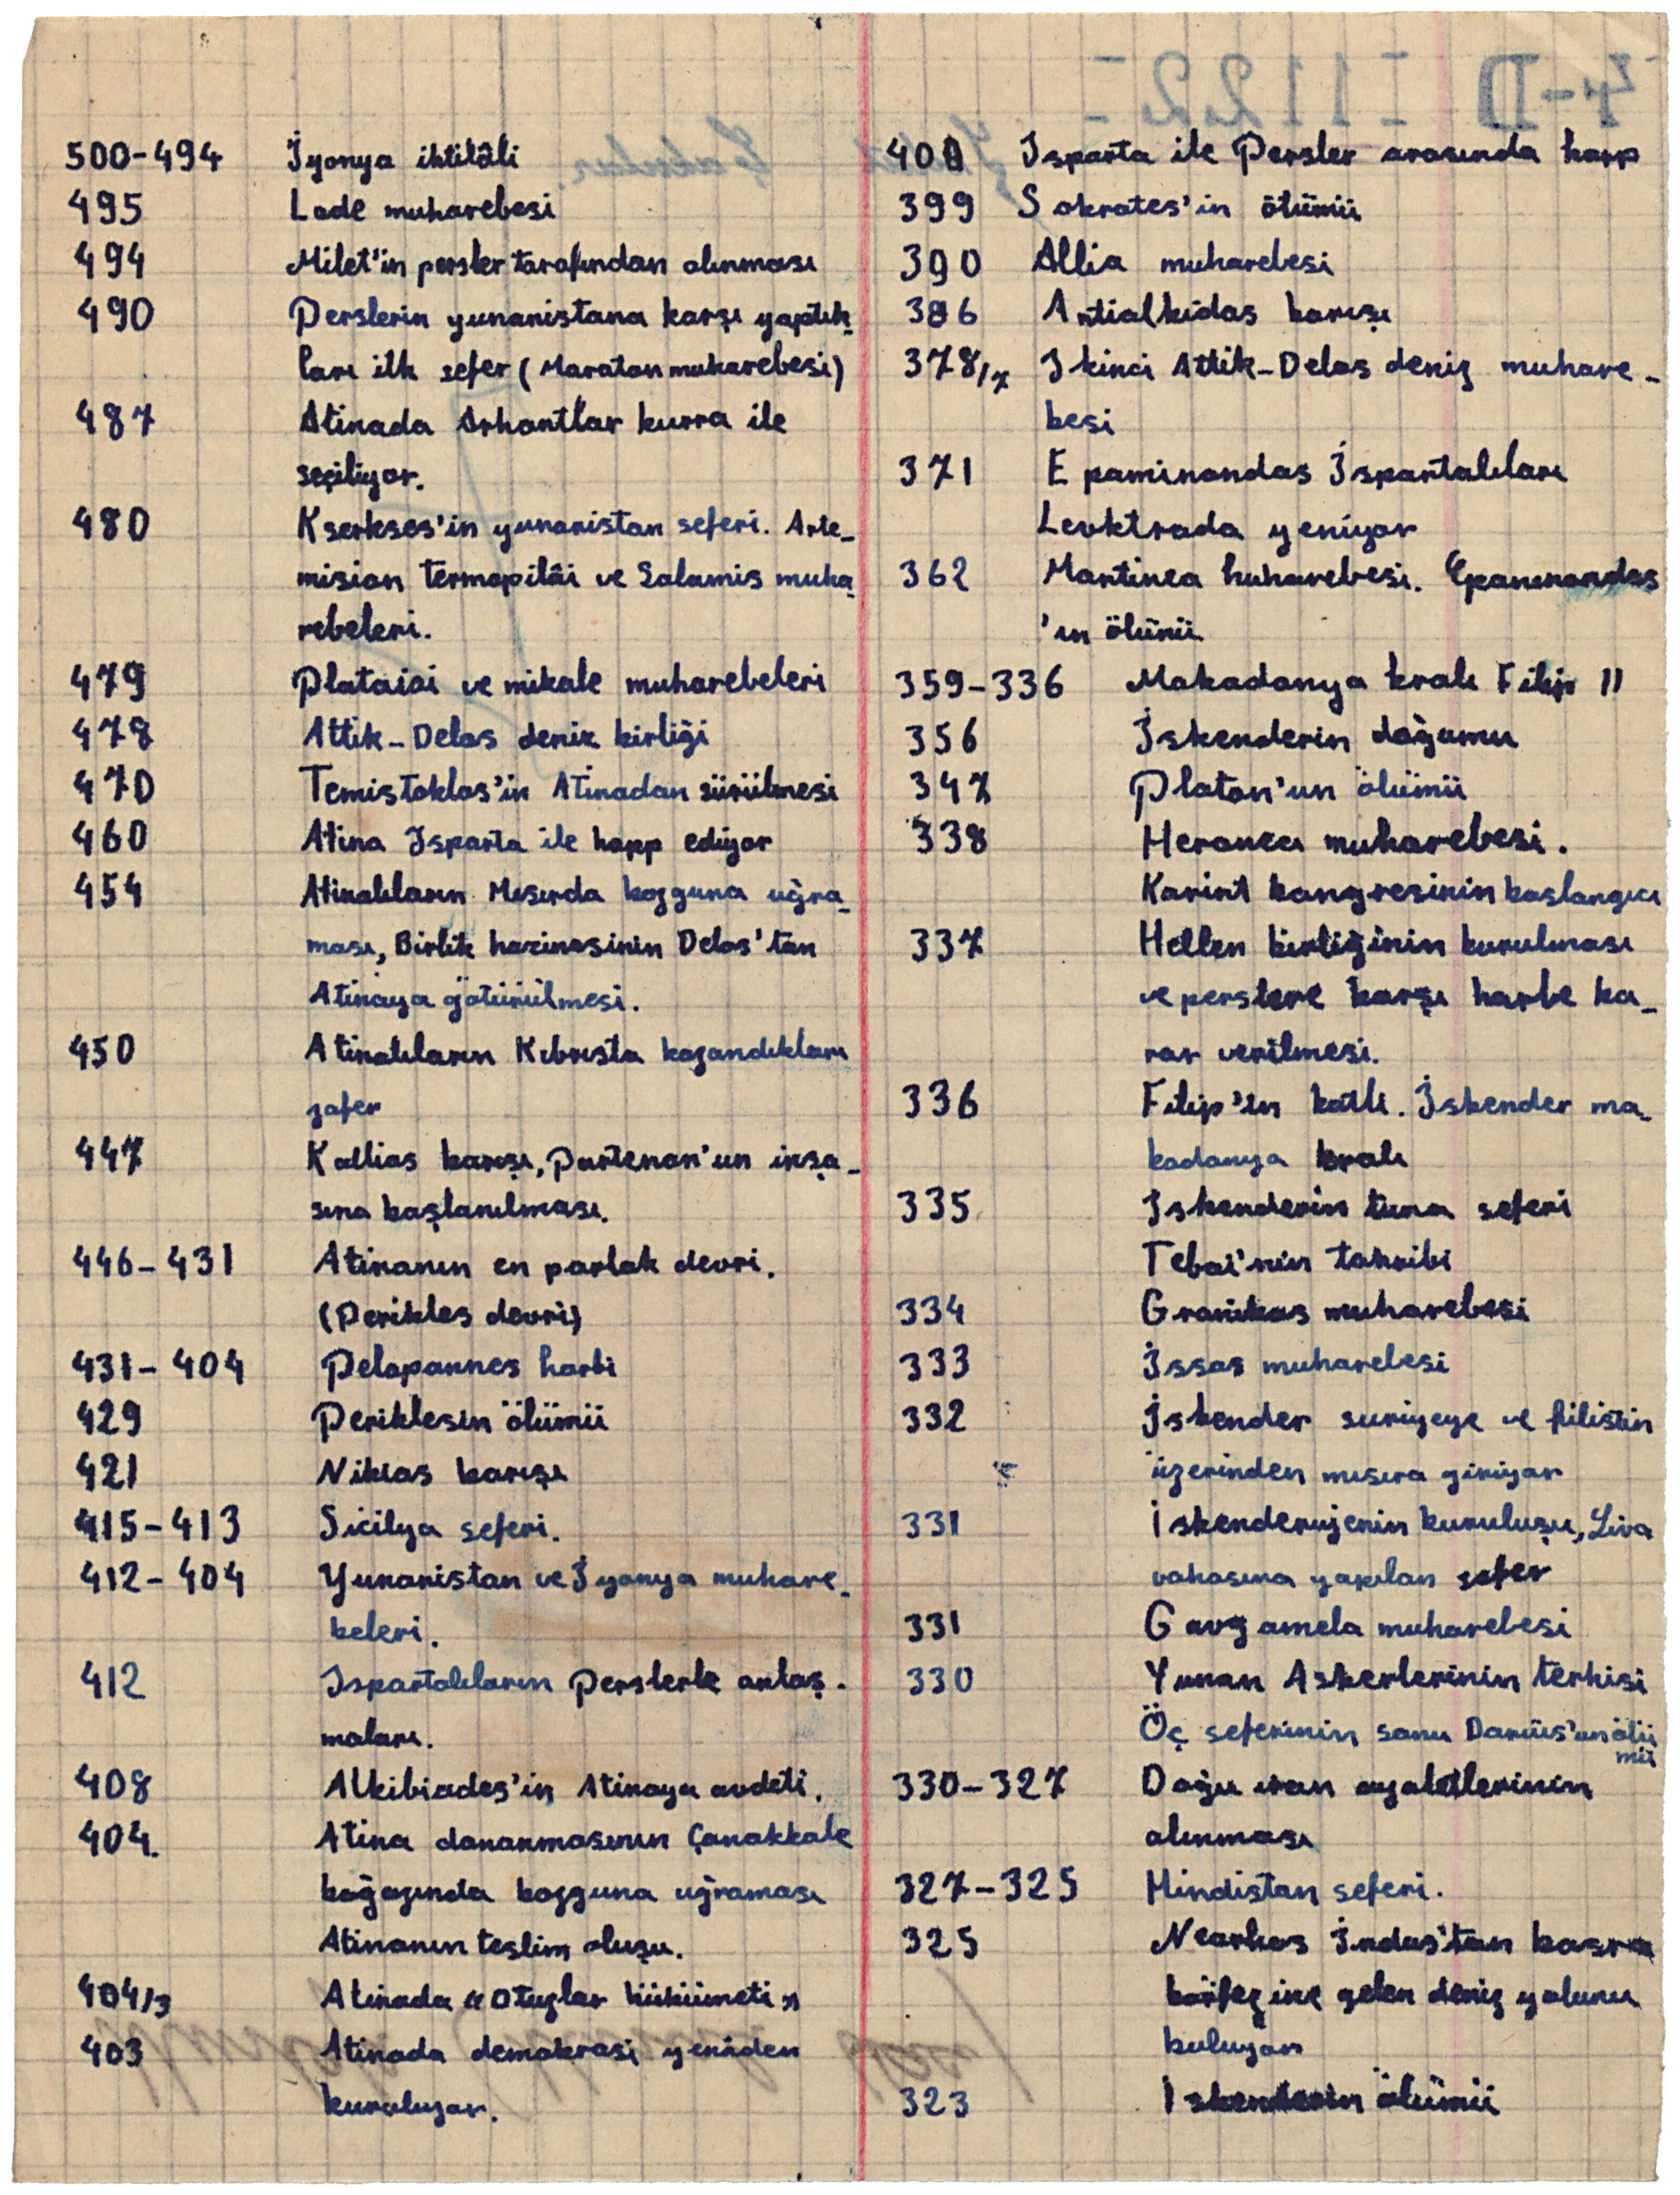 500-494 İyonya ihtilâli
495 Lade muharebesi
494 Milet'in persler tarafından alınması
490 Perslerin yunanistana karşı yaptık-
ları ilk sefer (Maraton muharebesi)
487 Atinada Arhontlar kurra ile
seçiliyor.
480 Kserkses'in yunanistan seferi. Arte-
mision Termopilâi ve Salamis muha-
rebeleri.
479 Plataiai ve mikale muharebeleri
478 Attik-Delos deniz birliği
470 Temistokles'in Atinadan sürülmesi
460 Atina Isparta ile harp ediyor
454 Atinalıların Mısırda bozguna uğra-
ması, Birlik hazinesinin Delos'tan
Atinaya götürülmesi.
450 Atinalıların Kıbrısta kazandıkları
zafer
447 Kallias barışı, Partenon'un inşa-
sına başlanılması.
446-431 Atinanın en parlak devri.
(Perikles devri)
431-404 Pelaponnes harbi
429 Periklesin ölümü
421 Nikias barışı
415-413 Sicilya seferi.
412-404 Yunanistan ve İyonya muhare-
beleri.
412 Ispartalıların Perslerle anlaş-
maları.
408 Alkibiades'in Atinaya avdeti.
404. Atina donanmasının Çanakkale
boğazında bozguna uğraması
Atinanın teslim oluşu.
404/3 Atinada "Otuzlar hükümeti"
403 Atinada demokrasi yeniden
kuruluyor.
400 Isparta ile Persler arasında harp
399 Sokrates'in ölümü
390 Allia muharebesi
386 Antialkidas barışı
378/7 Ikinci Attik-Delos deniz muhare-
besi
371 Epaminondas İspartalıları
Levktrada yeniyor
362 Mantinea huharebesi. Epaminondas
'ın ölümü
359-336 Makadonya kralı Filip II
356 İskenderin doğumu
347 Platon'un ölümü
338 Heronea muharebesi.
Korint kongresinin başlangıcı
337 Hellen birliğinin kurulması
ve perslere karşı harbe ka-
rar verilmesi.
336 Filip'in katli. İskender ma-
kadonya kralı
335 Iskenderin tuna seferi
Tebai'nin tahribi
334 Granikos muharebesi
333 İssos muharebesi
332 İskender suriyeye ve filistin
üzerinden mısıra giriyor
331 İskenderiyenin kuruluşu, Siva
vahasına yapılan sefer
331 Gavgamela muharebesi
330 Yunan Askerlerinin terhisi
Öç seferinin sonu Darius'un ölü
mü
330-327 Doğu iran eyaletlerinin
alınması
327-325 Hindistan seferi.
325 Nearhos İndus'tan basra
körfezine gelen deniz yolunu
buluyor
323 İskenderin ölümü